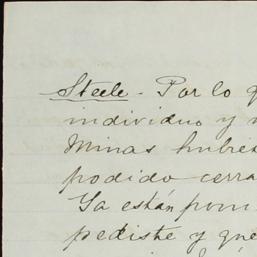 Steele - Por lo
individuo y
Minas hubie
podido cerra
Ya están pom
pediste y que